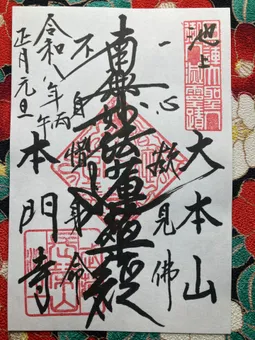 池上
大本山
一心欲見佛
南無妙法蓮華経
不自惜身命
本門寺
令和八年丙午
正月元旦